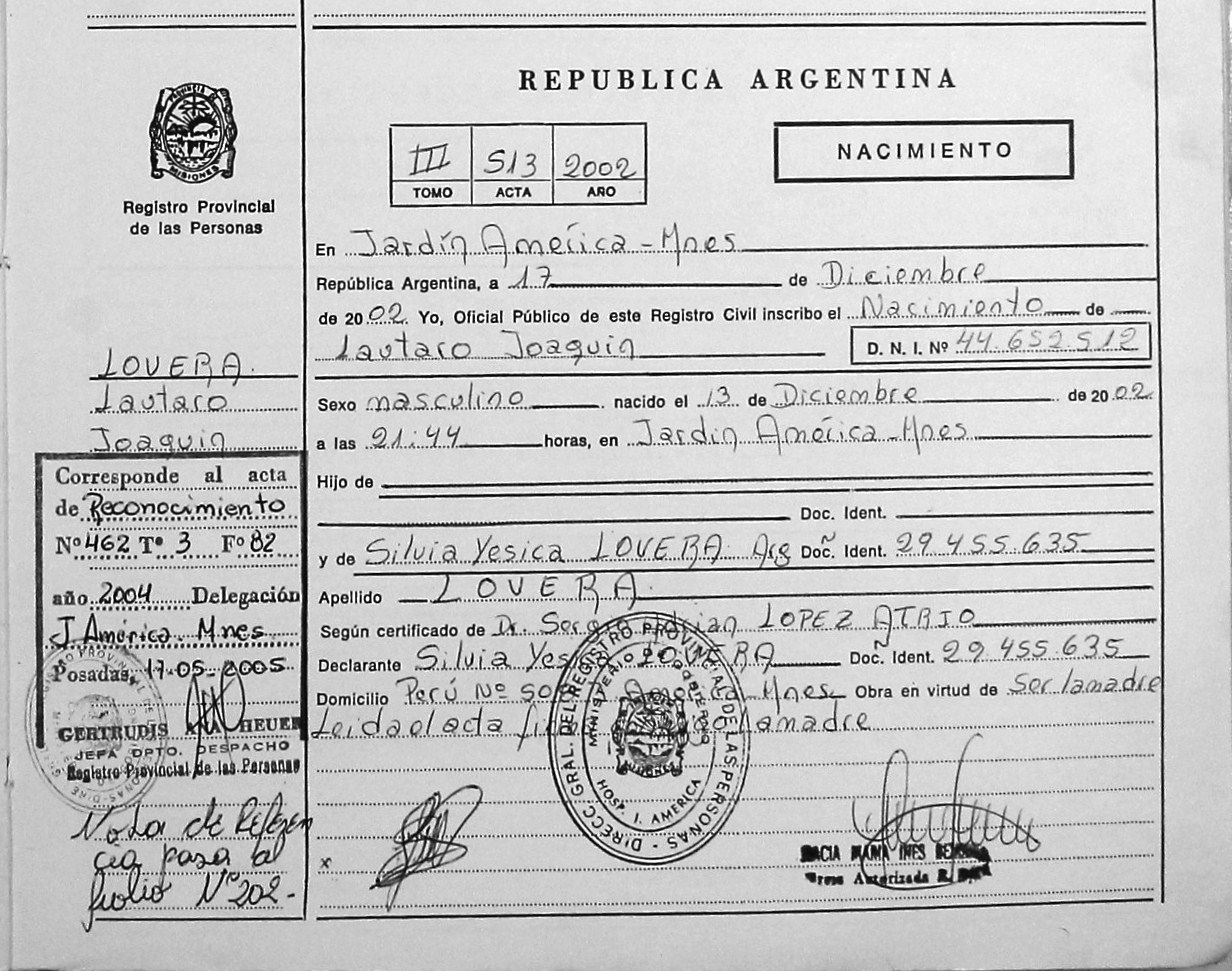 PROVINCIA DE
MISIONES
Registro Provincial
de las Personas
LOVERA.
Lautaro
Joaquin
Corresponde al acta
de Reconocimiento
Nº 462 Tº 3 Fº 82
año 2004 Delegación
J. América - Mnes
Posadas, 17-05-2005
GERTRUDIS HEUER
JEFA DPTO. DESPACHO
Registro Provincial de las Personas
Nota de Referen
cia pasa al
folio Nº 202-
REPUBLICA ARGENTINA
III 513 2002
TOMO ACTA AÑO
NACIMIENTO
En Jardín América - Mnes
República Argentina, a 17 de Diciembre
de 2002. Yo, Oficial Público de este Registro Civil inscribo el Nacimiento de
Lautaro Joaquin D. N. I. Nº 44.652.512
Sexo masculino nacido el 13 de Diciembre de 2002
a las 21:44 horas, en Jardín América - Mnes
Hijo de
Doc. Ident.
y de Silvia Yesica LOVERA Arg Doc. Ident. 29.455.635
Apellido LOVERA.
Según certificado de Dr. LOPEZ ATRIO
Declarante Silvia LOVERA Doc. Ident. 29.455.635
Domicilio Perú Nº Mnes Obra en virtud de Ser la madre
Leida el acta la madre
DIRECC. GRAL. DEL REGISTRO PROVINCIAL DE LAS PERSONAS
MINISTERIO DE GOBIERNO
MISIONES
HOSP. J. AMERICA
x
MARIA INES
Autorizada